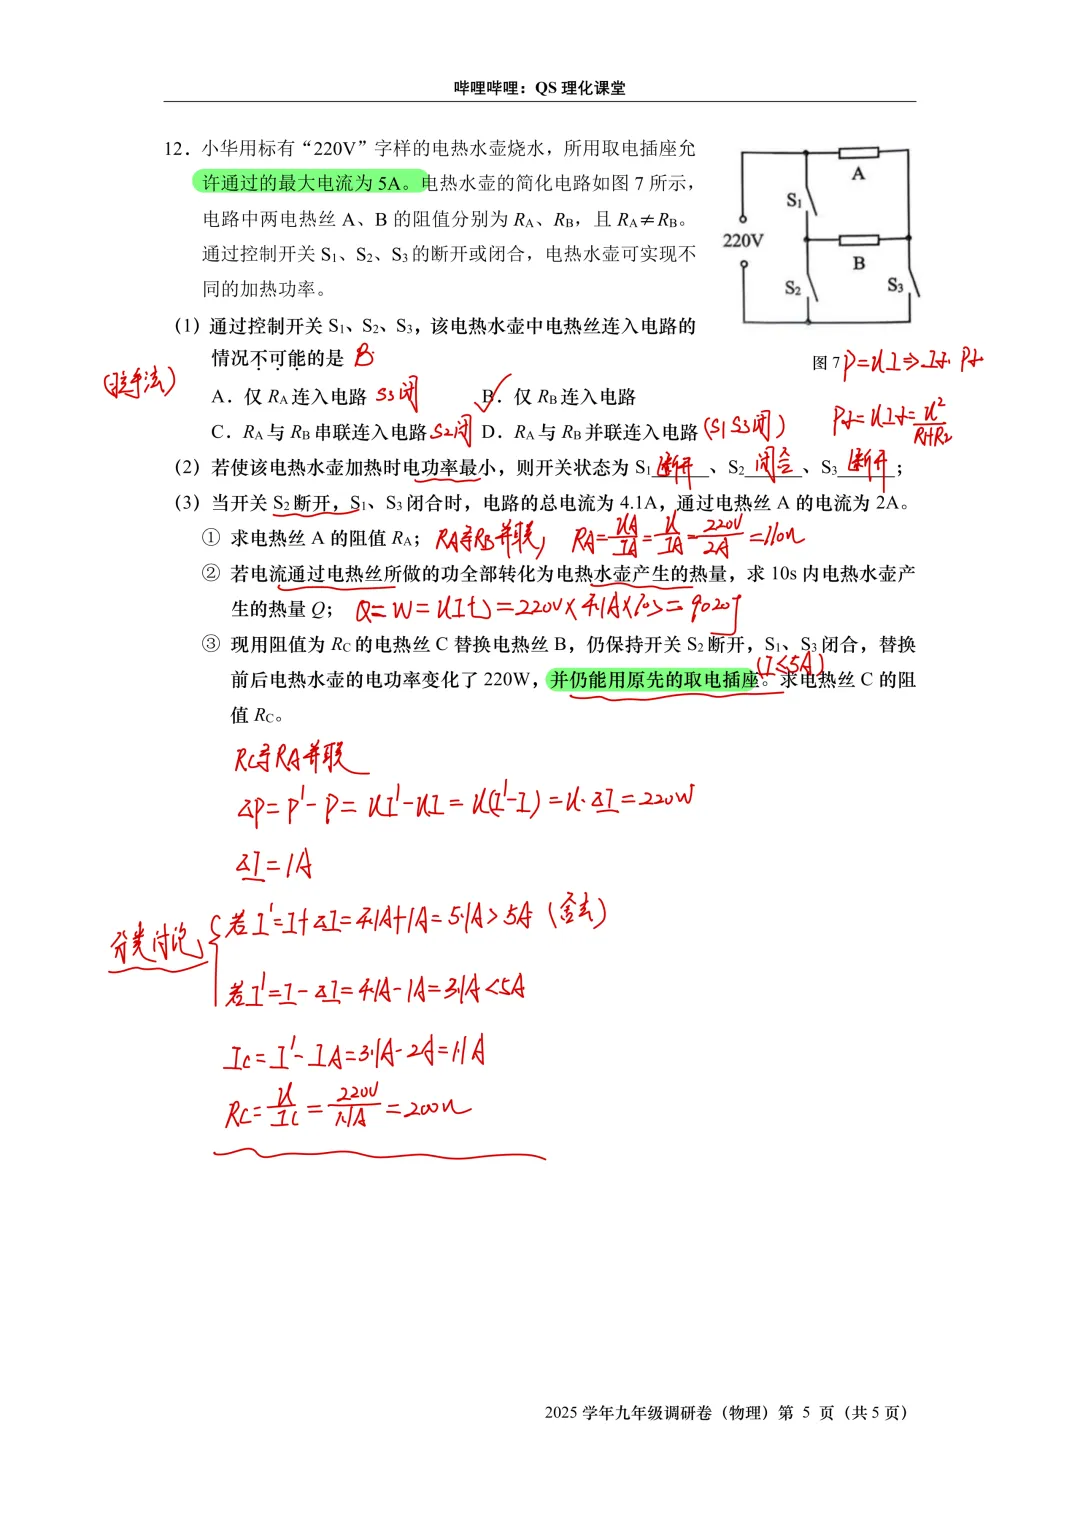 哔哩哔哩：QS 理化课堂
12．小华用标有“220V”字样的电热水壶烧水，所用取电插座允
许通过的最大电流为 5A。电热水壶的简化电路如图 7 所示，
电路中两电热丝 A、B 的阻值分别为 RA、RB，且 RA≠RB。
通过控制开关 S1、S2、S3 的断开或闭合，电热水壶可实现不
同的加热功率。
A
S1
220V
B
S2
S3
图 7
P=UI⇒I小 P小
P小=UI小=U²/R1+R2
（1）通过控制开关 S1、S2、S3，该电热水壶中电热丝连入电路的
情况不可能的是 B
A．仅 RA 连入电路 S3闭 B．仅 RB 连入电路
C．RA 与 RB 串联连入电路 S2闭 D．RA 与 RB 并联连入电路 (S1 S3闭)
（2）若使该电热水壶加热时电功率最小，则开关状态为 S1 断开、S2 闭合、S3 断开；
（3）当开关 S2 断开，S1、S3 闭合时，电路的总电流为 4.1A，通过电热丝 A 的电流为 2A。
① 求电热丝 A 的阻值 RA； RA与RB并联， RA=UA/IA=U/IA=220V/2A=110Ω
② 若电流通过电热丝所做的功全部转化为电热水壶产生的热量，求 10s 内电热水壶产
生的热量 Q； Q=W=UIt=220V×4.1A×10s=9020J
③ 现用阻值为 RC 的电热丝 C 替换电热丝 B，仍保持开关 S2 断开，S1、S3 闭合，替换
(I≤5A)
前后电热水壶的电功率变化了 220W，并仍能用原先的取电插座。求电热丝 C 的阻
值 RC。
RC与RA并联
ΔP=P'-P=UI'-UI=U(I'-I)=U·ΔI=220W
ΔI=1A
分类讨论
若I'=I+ΔI=4.1A+1A=5.1A>5A (舍去)
若I'=I-ΔI=4.1A-1A=3.1A<5A
IC=I'-IA=3.1A-2A=1.1A
RC=U/IC=220V/1.1A=200Ω
2025 学年九年级调研卷（物理）第 5 页（共 5 页）